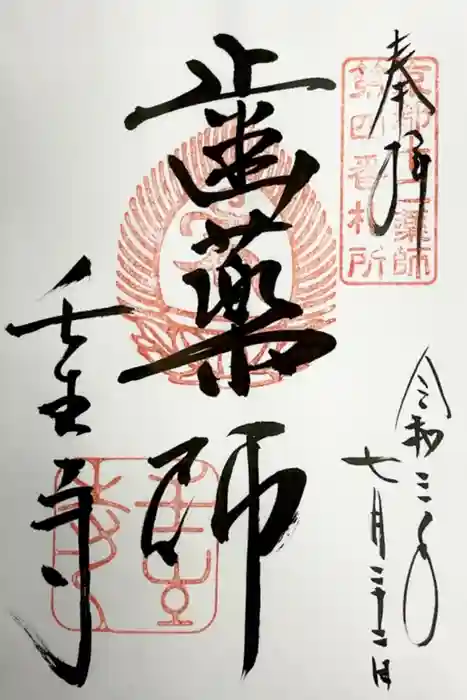 奉拝
京都十二薬師
第四番札所
歯薬師
壬生寺
令和三年
七月二十二日